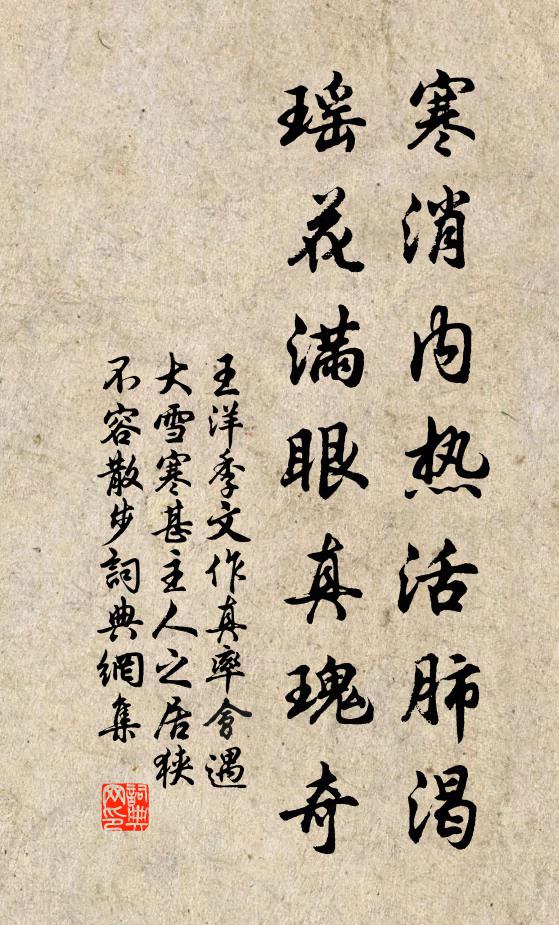 寒消内热活肺渴
瑶花满眼真瑰奇
王洋季文作真率會遇
大雪寒甚主人之居狭
不容散步詞典網集
詞典
网印